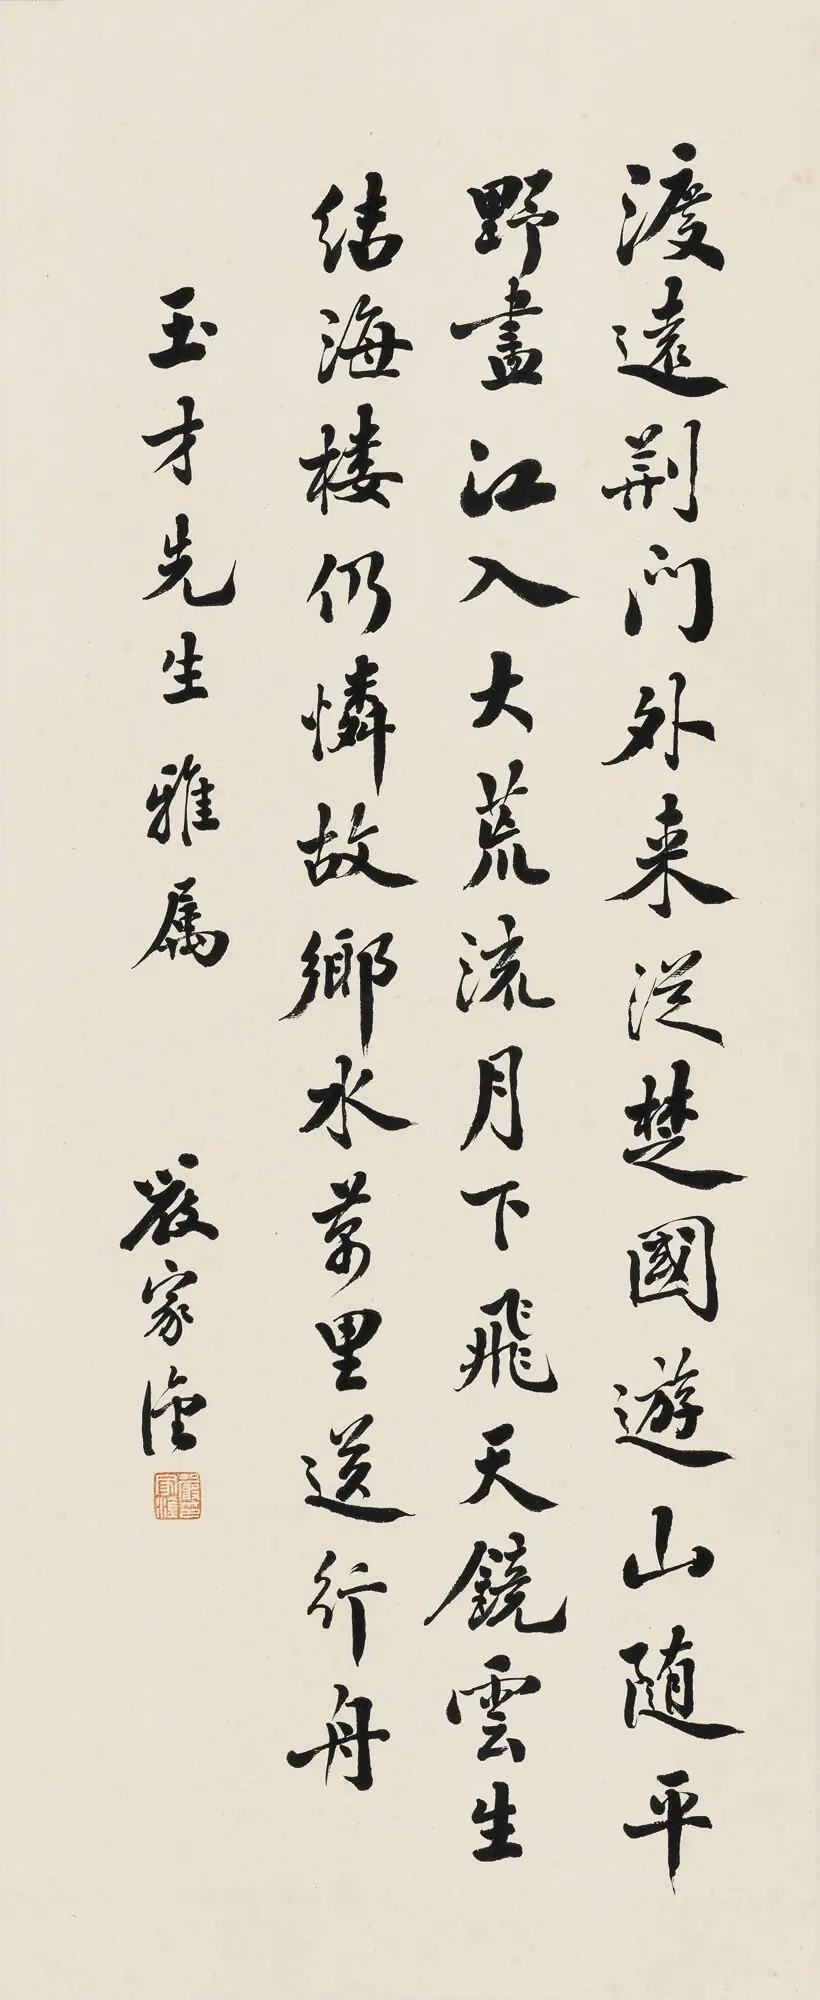 渡遠荆门外来従楚國遊山随平
野盡江入大荒流月下飛天鏡雲生
结海楼仍憐故鄉水萬里送行舟
玉才先生雅属
嚴家淦
嚴家淦印